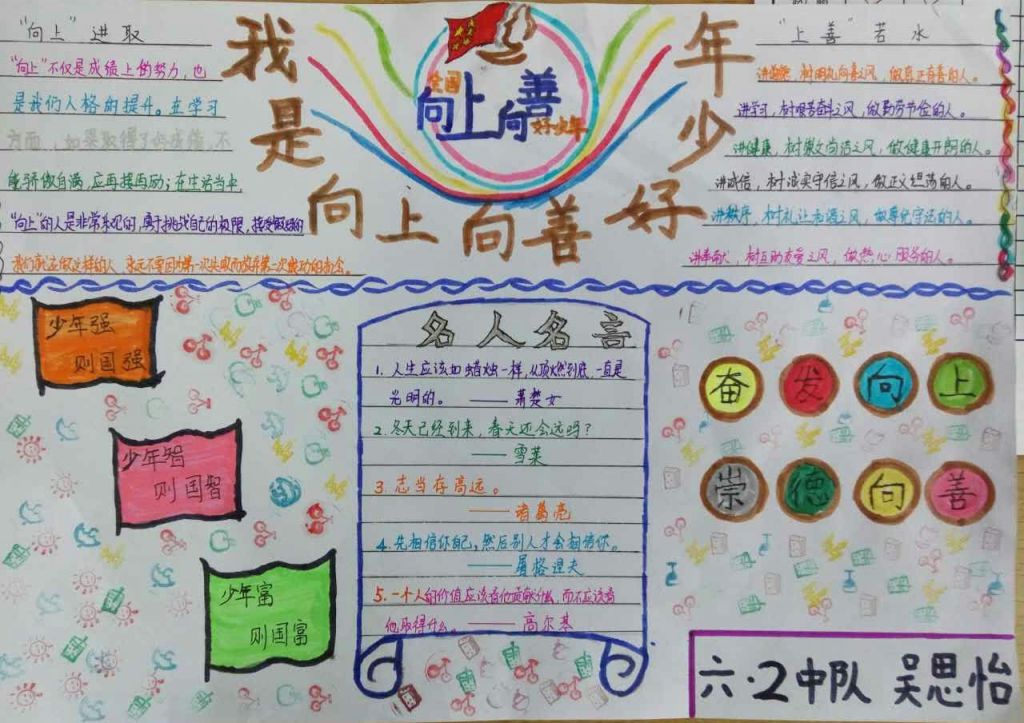 我是向上向善好年少
全国
向上向善
好少年
"向上"进取
"向上"不仅是成绩上的努力，也
是我们人格的提升。在学习
方面，如果取得了好成绩，不
能骄傲自满，应再接再厉；在生活当中
"向上"的人是非常乐观的，勇于挑战自己的极限，接受
我们就应做这样的人，永远不要因为第一次失败而放弃第二次成功的
"上善"若水
讲道德，树明礼向善之风，做真正有善的人。
讲学习，树艰苦奋斗之风，做勤劳节俭的人。
讲健康，树崇文尚洁之风，做健康开朗的人。
讲诚信，树诚实守信之风，做正义坦荡的人。
讲秩序，树礼让之风，做尊纪守法的人。
讲奉献，树互助友爱之风，做热心服务的人。
少年强
则国强
少年智
则国智
少年富
则国富
名人名言
1.人生应该如蜡烛一样，从顶燃到底，一直是
光明的。——萧楚女
2.冬天已经到来，春天还会远吗？
——雪莱
3.志当存高远。
——诸葛亮
4.先相信你自己，然后别人才会相信你。
——屠格涅夫
5.一个人的价值应该看他贡献什么，而不应该看
他取得什么。——高尔基
奋发向上
崇德向善
六·2中队 吴思怡